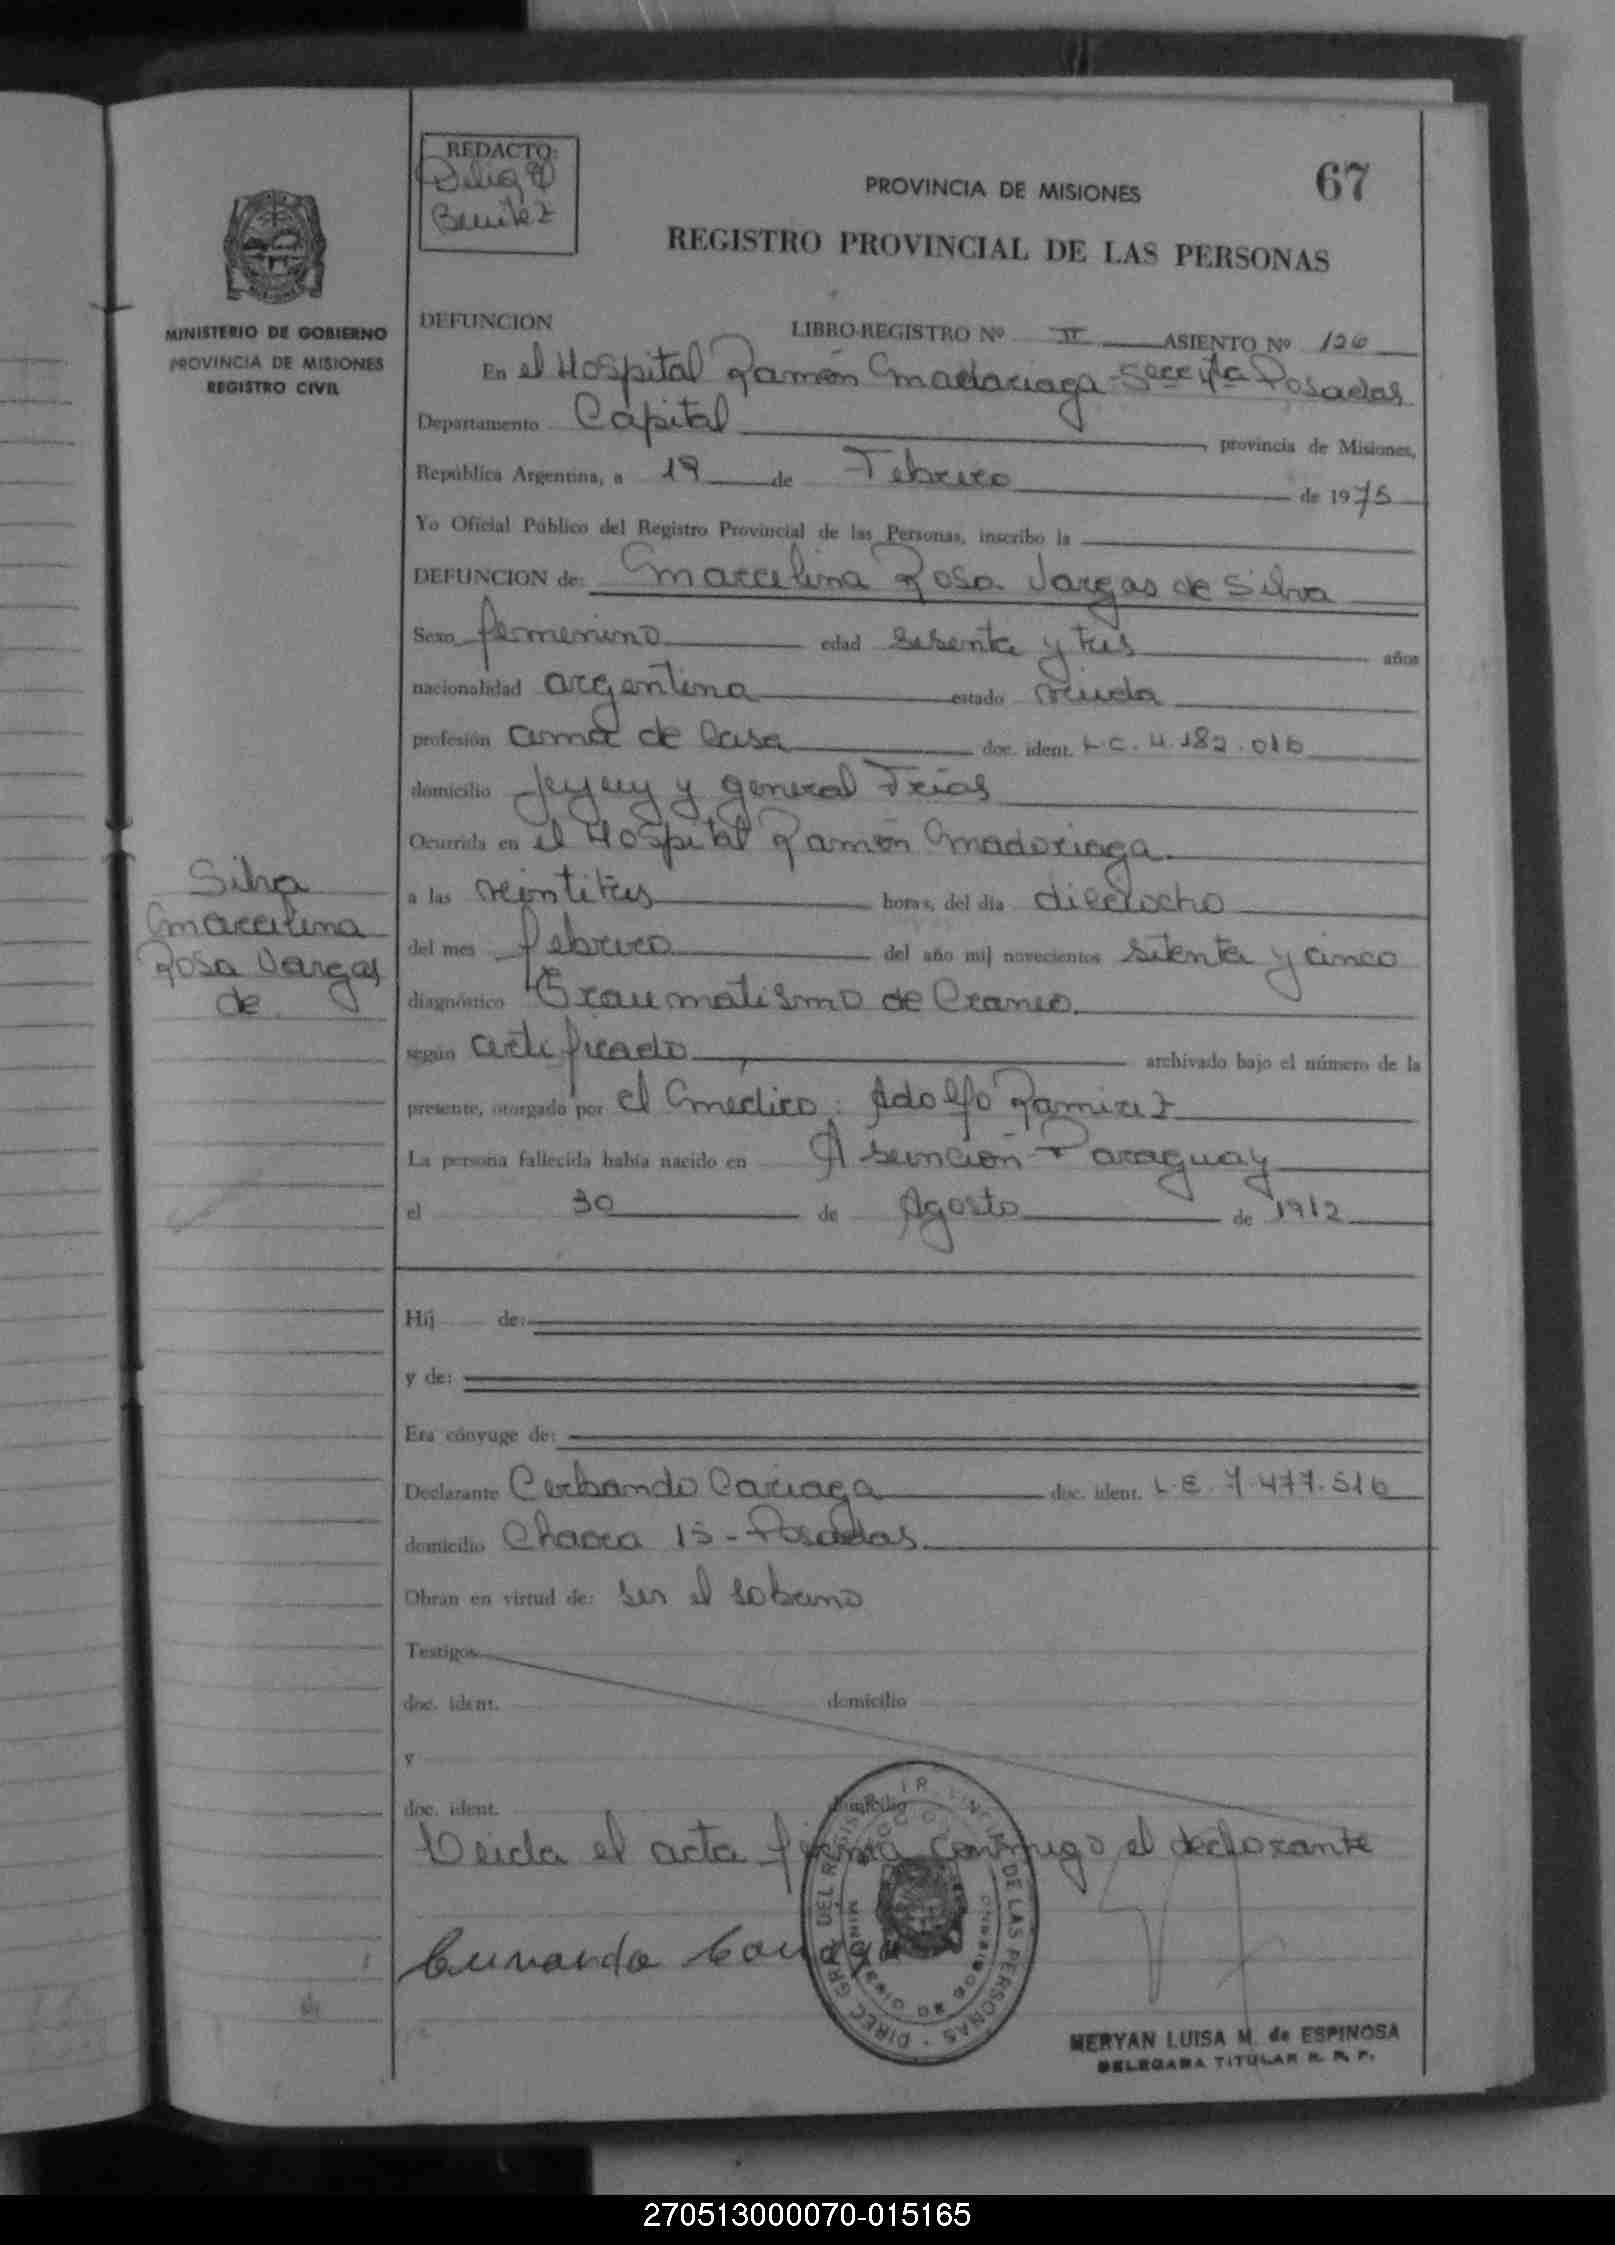 REDACTO:
Benitez
PROVINCIA DE MISIONES
67
REGISTRO PROVINCIAL DE LAS PERSONAS
MINISTERIO DE GOBIERNO
PROVINCIA DE MISIONES
REGISTRO CIVIL
DEFUNCION LIBRO-REGISTRO Nº II ASIENTO Nº 126
En el Hospital Ramón Madariaga Secc 1ra Posadas
Departamento Capital provincia de Misiones,
República Argentina, a 19 de Febrero de 1975
Yo Oficial Público del Registro Provincial de las Personas, inscribo la
DEFUNCION de: Marcelina Rosa Vargas de Silva
Sexo femenino edad sesenta y tres años
nacionalidad argentina estado viuda
profesión ama de casa doc. ident. L.C. 4.182.016
domicilio Jujuy y general Frias
Ocurrida en el Hospital Ramón Madariaga
a las veintitres horas, del día dieciocho
del mes febrero del año mil novecientos setenta y cinco
diagnóstico Traumatismo de Craneo
según certificado archivado bajo el número de la
presente, otorgado por el Medico: Adolfo Ramirez
La persona fallecida había nacido en Asunción Paraguay
el 30 de Agosto de 1912
Silva
Marcelina
Rosa Vargas
de
Hij de:
y de:
Era cónyuge de:
Declarante Cerbando Cariaga doc. ident. L.E. 7.477.516
domicilio Chacra 15 - Posadas
Obran en virtud de: ser el sobrino
Testigos
doc. ident. domicilio
y
doc. ident. domicilio
Leida el acta firma conmigo el declarante
DIREC. GRAL. DEL REGISTR PROVINCIAL DE LAS PERSONAS
MERYAN LUISA M. de ESPINOSA
DELEGADA TITULAR R. P. P.
270513000070-015165